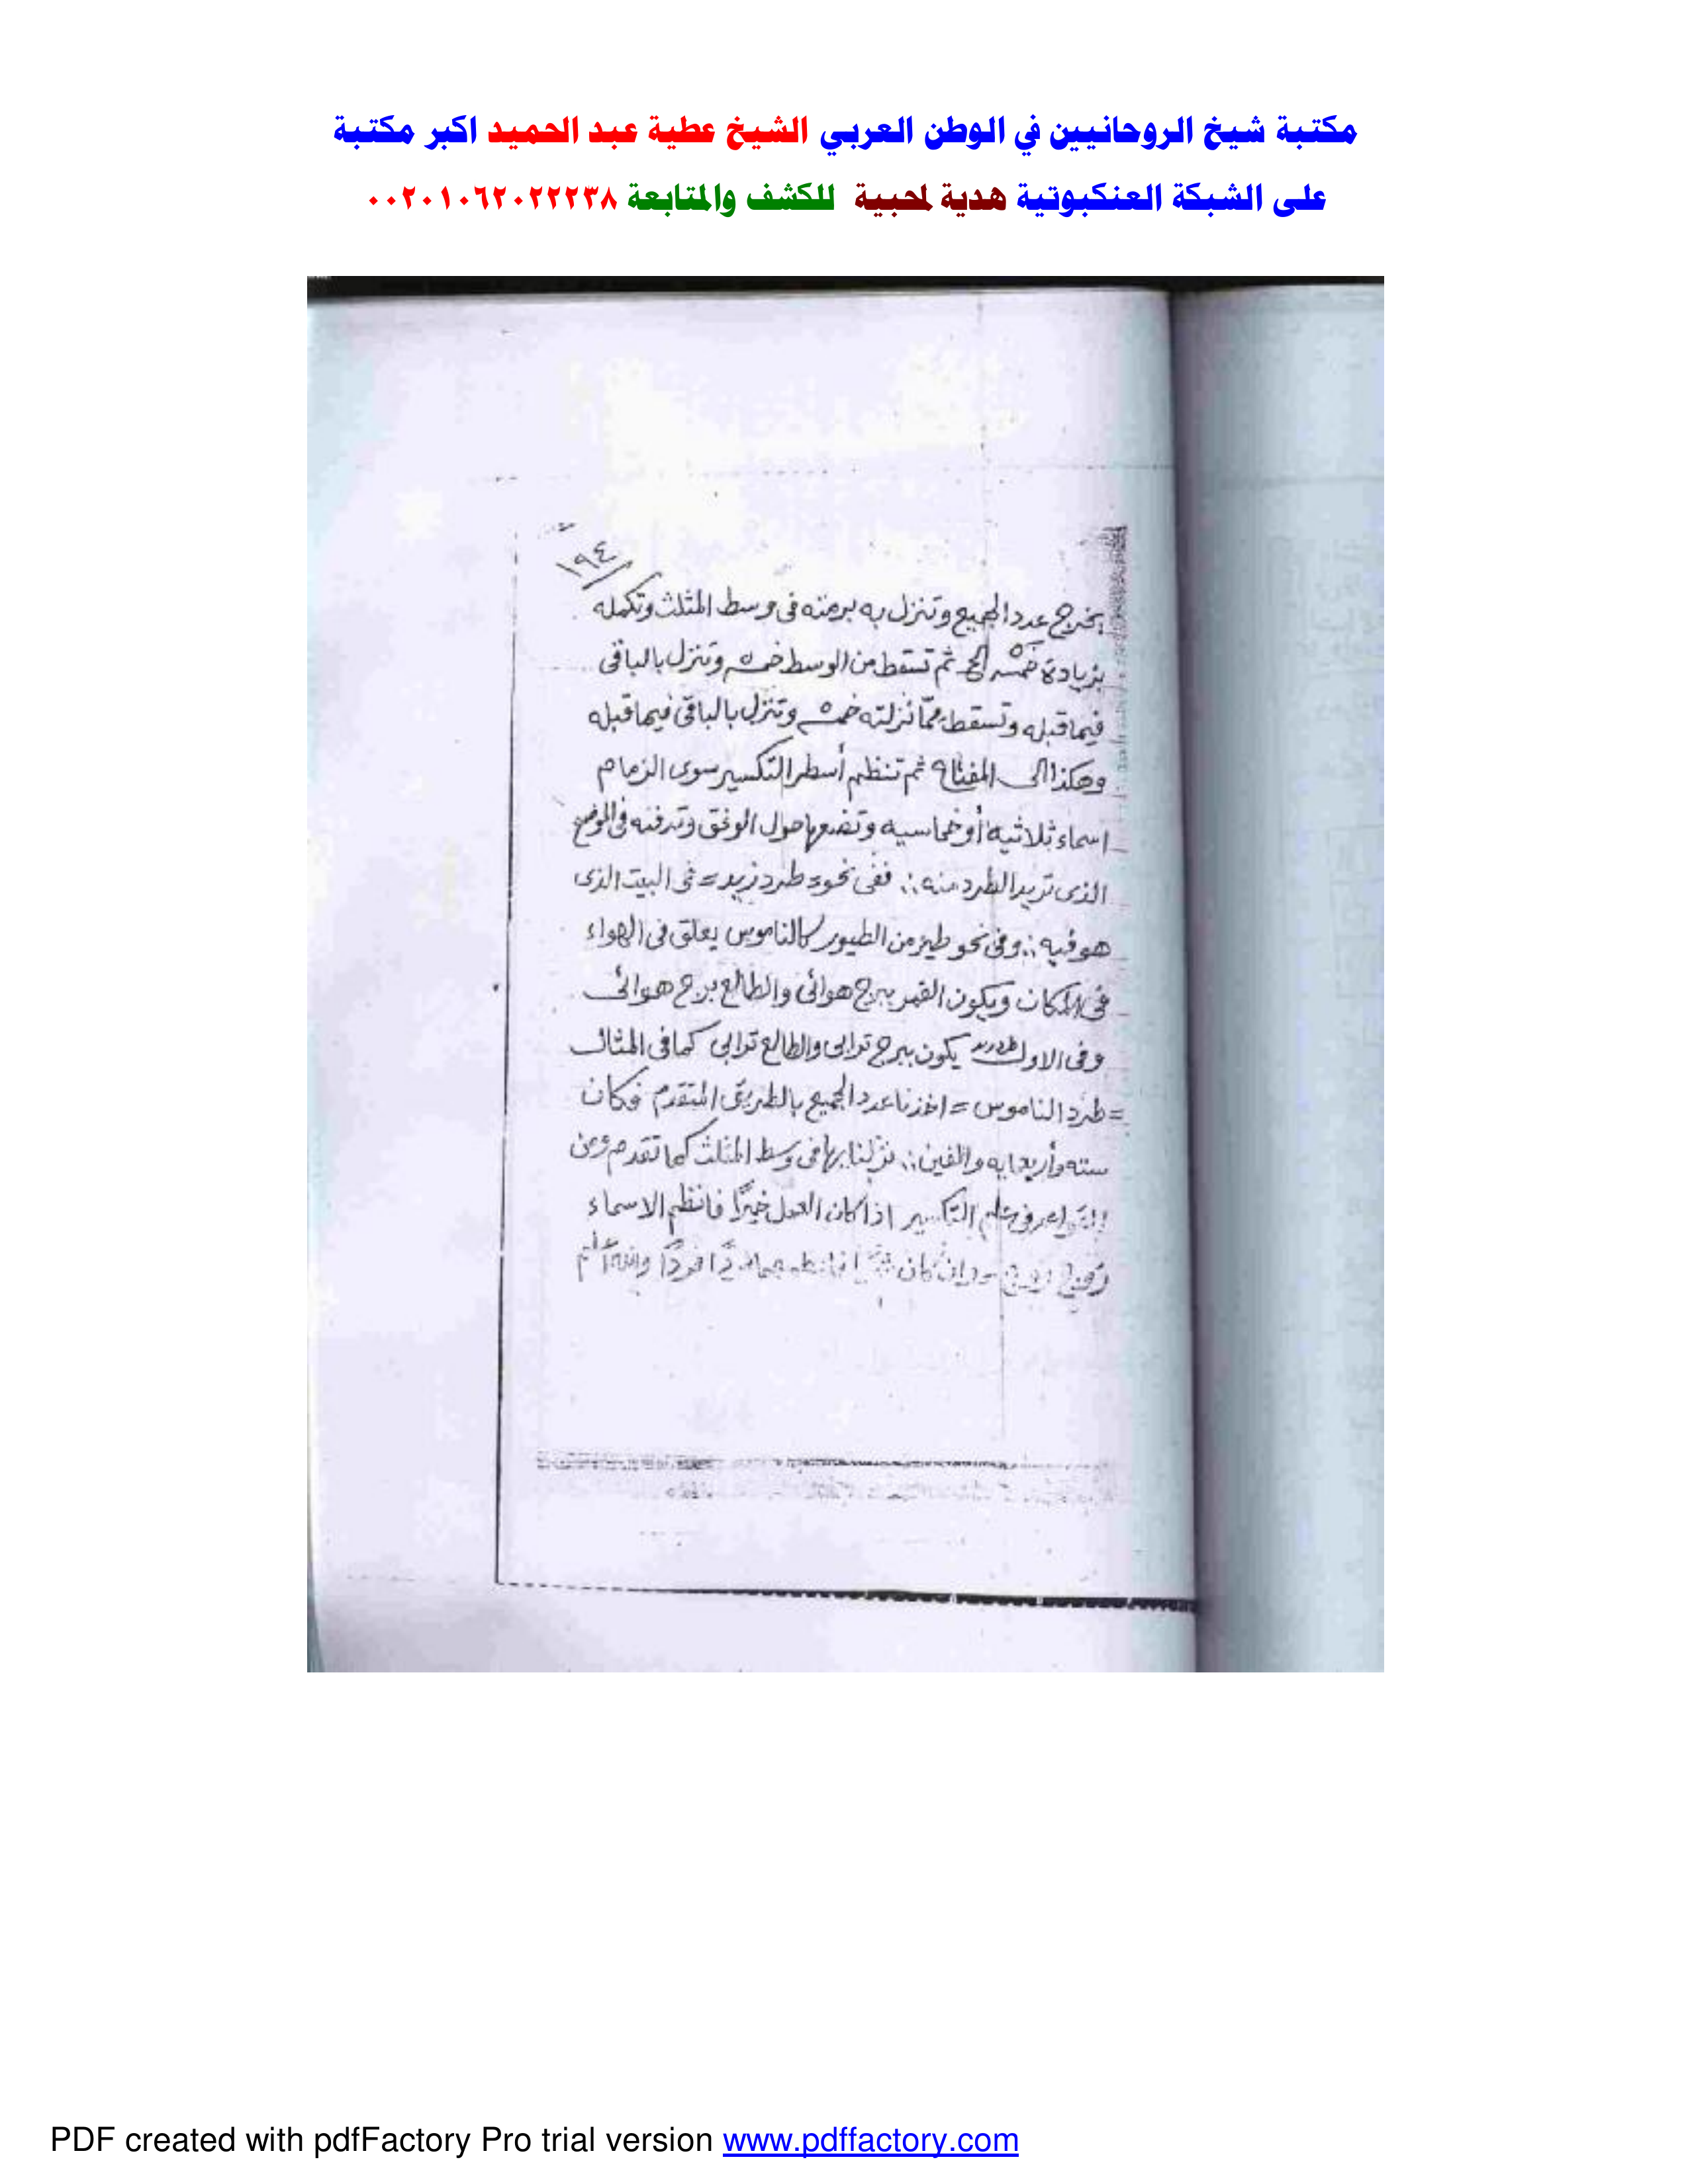 مكتبة شيخ الروحانيين في الوطن العربي الشيخ عطية عبد الحميد اكبر مكتبة
على الشبكة العنكبوتية هدية لمحبية للكشف والمتابعة ٠٠٢٠١٠٦٢٠٢٢٢٣٨
١٩٤
يخرج عدد الجميع وتنزل به برمته فى وسط المثلث وتكمله
بزيادة خمسه الخ ثم تسقط من الوسط خمسه وتنزل بالباقى
فيما قبله وتسقط مما نزلته خمسه وتنزل بالباقى فيما قبله
وهكذا الى المفتاح ثم تنظم أسطر التكسير سوى الزمام
اسماء ثلاثيه أو خماسيه وتضعها حول الوفق وتدفنه فى الموضع
الذى تريد الطرد منه ∴ ففى نحو = طرد زيد = فى البيت الذى
هو فيه ∴ وفى نحو طير من الطيور كالناموس يعلق فى الهواء
فى المكان ويكون القمر ببرج هوائى والطالع برج هوائى
وفى الاول يكون ببرج ترابى والطالع ترابى كما فى المثال
= طرد الناموس = اخذنا عدد الجميع بالطريق المتقدم فكان
سته وأربعمايه والفين ∴ نزلنا بها فى وسط المثلث كما تقدم ومن
القواعد فى علم التكسير اذا كان العمل خيرًا فانظم الاسماء
وان كان فردًا فردًا والله أعلم
PDF created with pdfFactory Pro trial version www.pdffactory.com